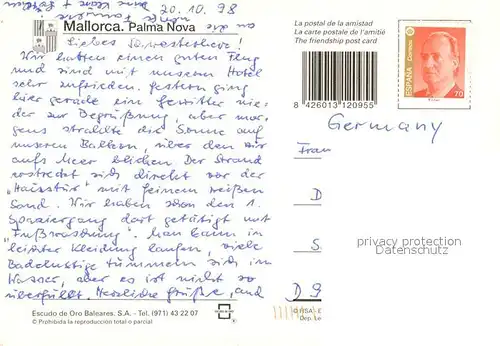 20.10.98
Mallorca. Palma Nova
Liebes
Wir hatten einen guten Flug
und sind mit unserem Hotel
sehr zufrieden. Gestern ging
hier gerade ein Gewitter nie-
der zur Begrüßung, aber mor-
gens strahlte die Sonne auf
unseren Balkon, über den wir
aufs Meer blicken. Der Strand
erstreckt sich direkt vor der
"Haustür" mit feinem weißen
Sand. Wir haben schon den 1.
Spaziergang dort getätigt mit
"Fußwaschung". Man kann in
leichter Kleidung laufen, viele
Badelustige tummeln sich im
Wasser, aber es ist nicht so
überfüllt. Herzliche Grüße, auch
an die
Familie
Escudo de Oro Baleares. S.A. - Tel. (971) 43 22 07
© Prohibida la reproducción total o parcial
La postal de la amistad
La carte postale de l'amitié
The friendship post card
8 426013 120955
ESPAÑA
Correos
70
Germany
Frau
D
S
D 9
privacy protection
akpool.de
privacy protection
akpool.de
Dep. Le